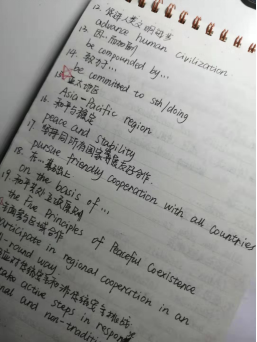 12. 促进人类文明进步
advance human civilization
13. 因…而加剧
be compounded by...
14. 致力于…
be committed to sth/doing
15. 亚太地区
Asia-Pacific region
16. 和平与稳定
peace and stability
17. 坚持同所有国家发展友好合作
pursue friendly cooperation with all countries
18. 在…基础上
on the basis of ...
19. 和平共处五项原则
the Five Principles of Peaceful Coexistence
区域合作
participate in regional cooperation in an
all-round way
take active steps in respon
nal and non-traditi